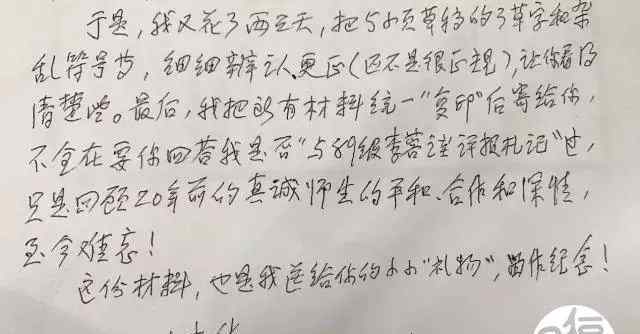 于是,我又花了两三天,把5小页草稿的了草字和杂
乱符号等,细细辩认更正(还不是很正规),让你看得
清楚些。最后,我把所有材料统一“复印”后寄给你,
不全在要你回答我是否“与89级李蓉 评报札记”过,
只是回顾20年前的真诚师生的平和、合作和深情,
至今难忘!
这份材料,也是我送给你的小小“礼物”,留作纪念!